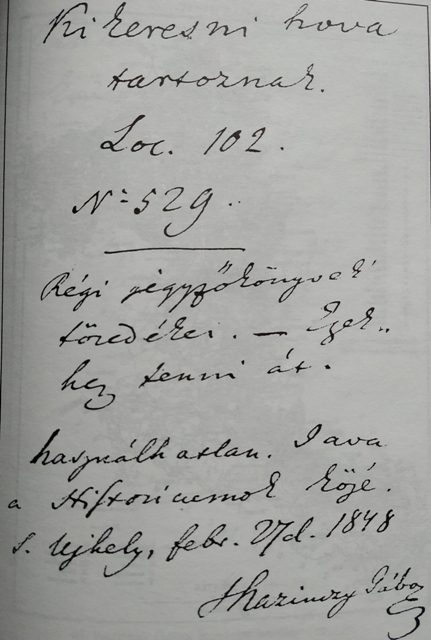 Ki keresni hova
tartoznak.
Loc. 102.
No 529.
Régi jegyzőkönyvek
töredékei. — Ezek„
hez tenni át.
használhatlan. Java
a Historicumok közé.
S. Ujhely, febr. 27d. 1848
Kazinczy Gábor